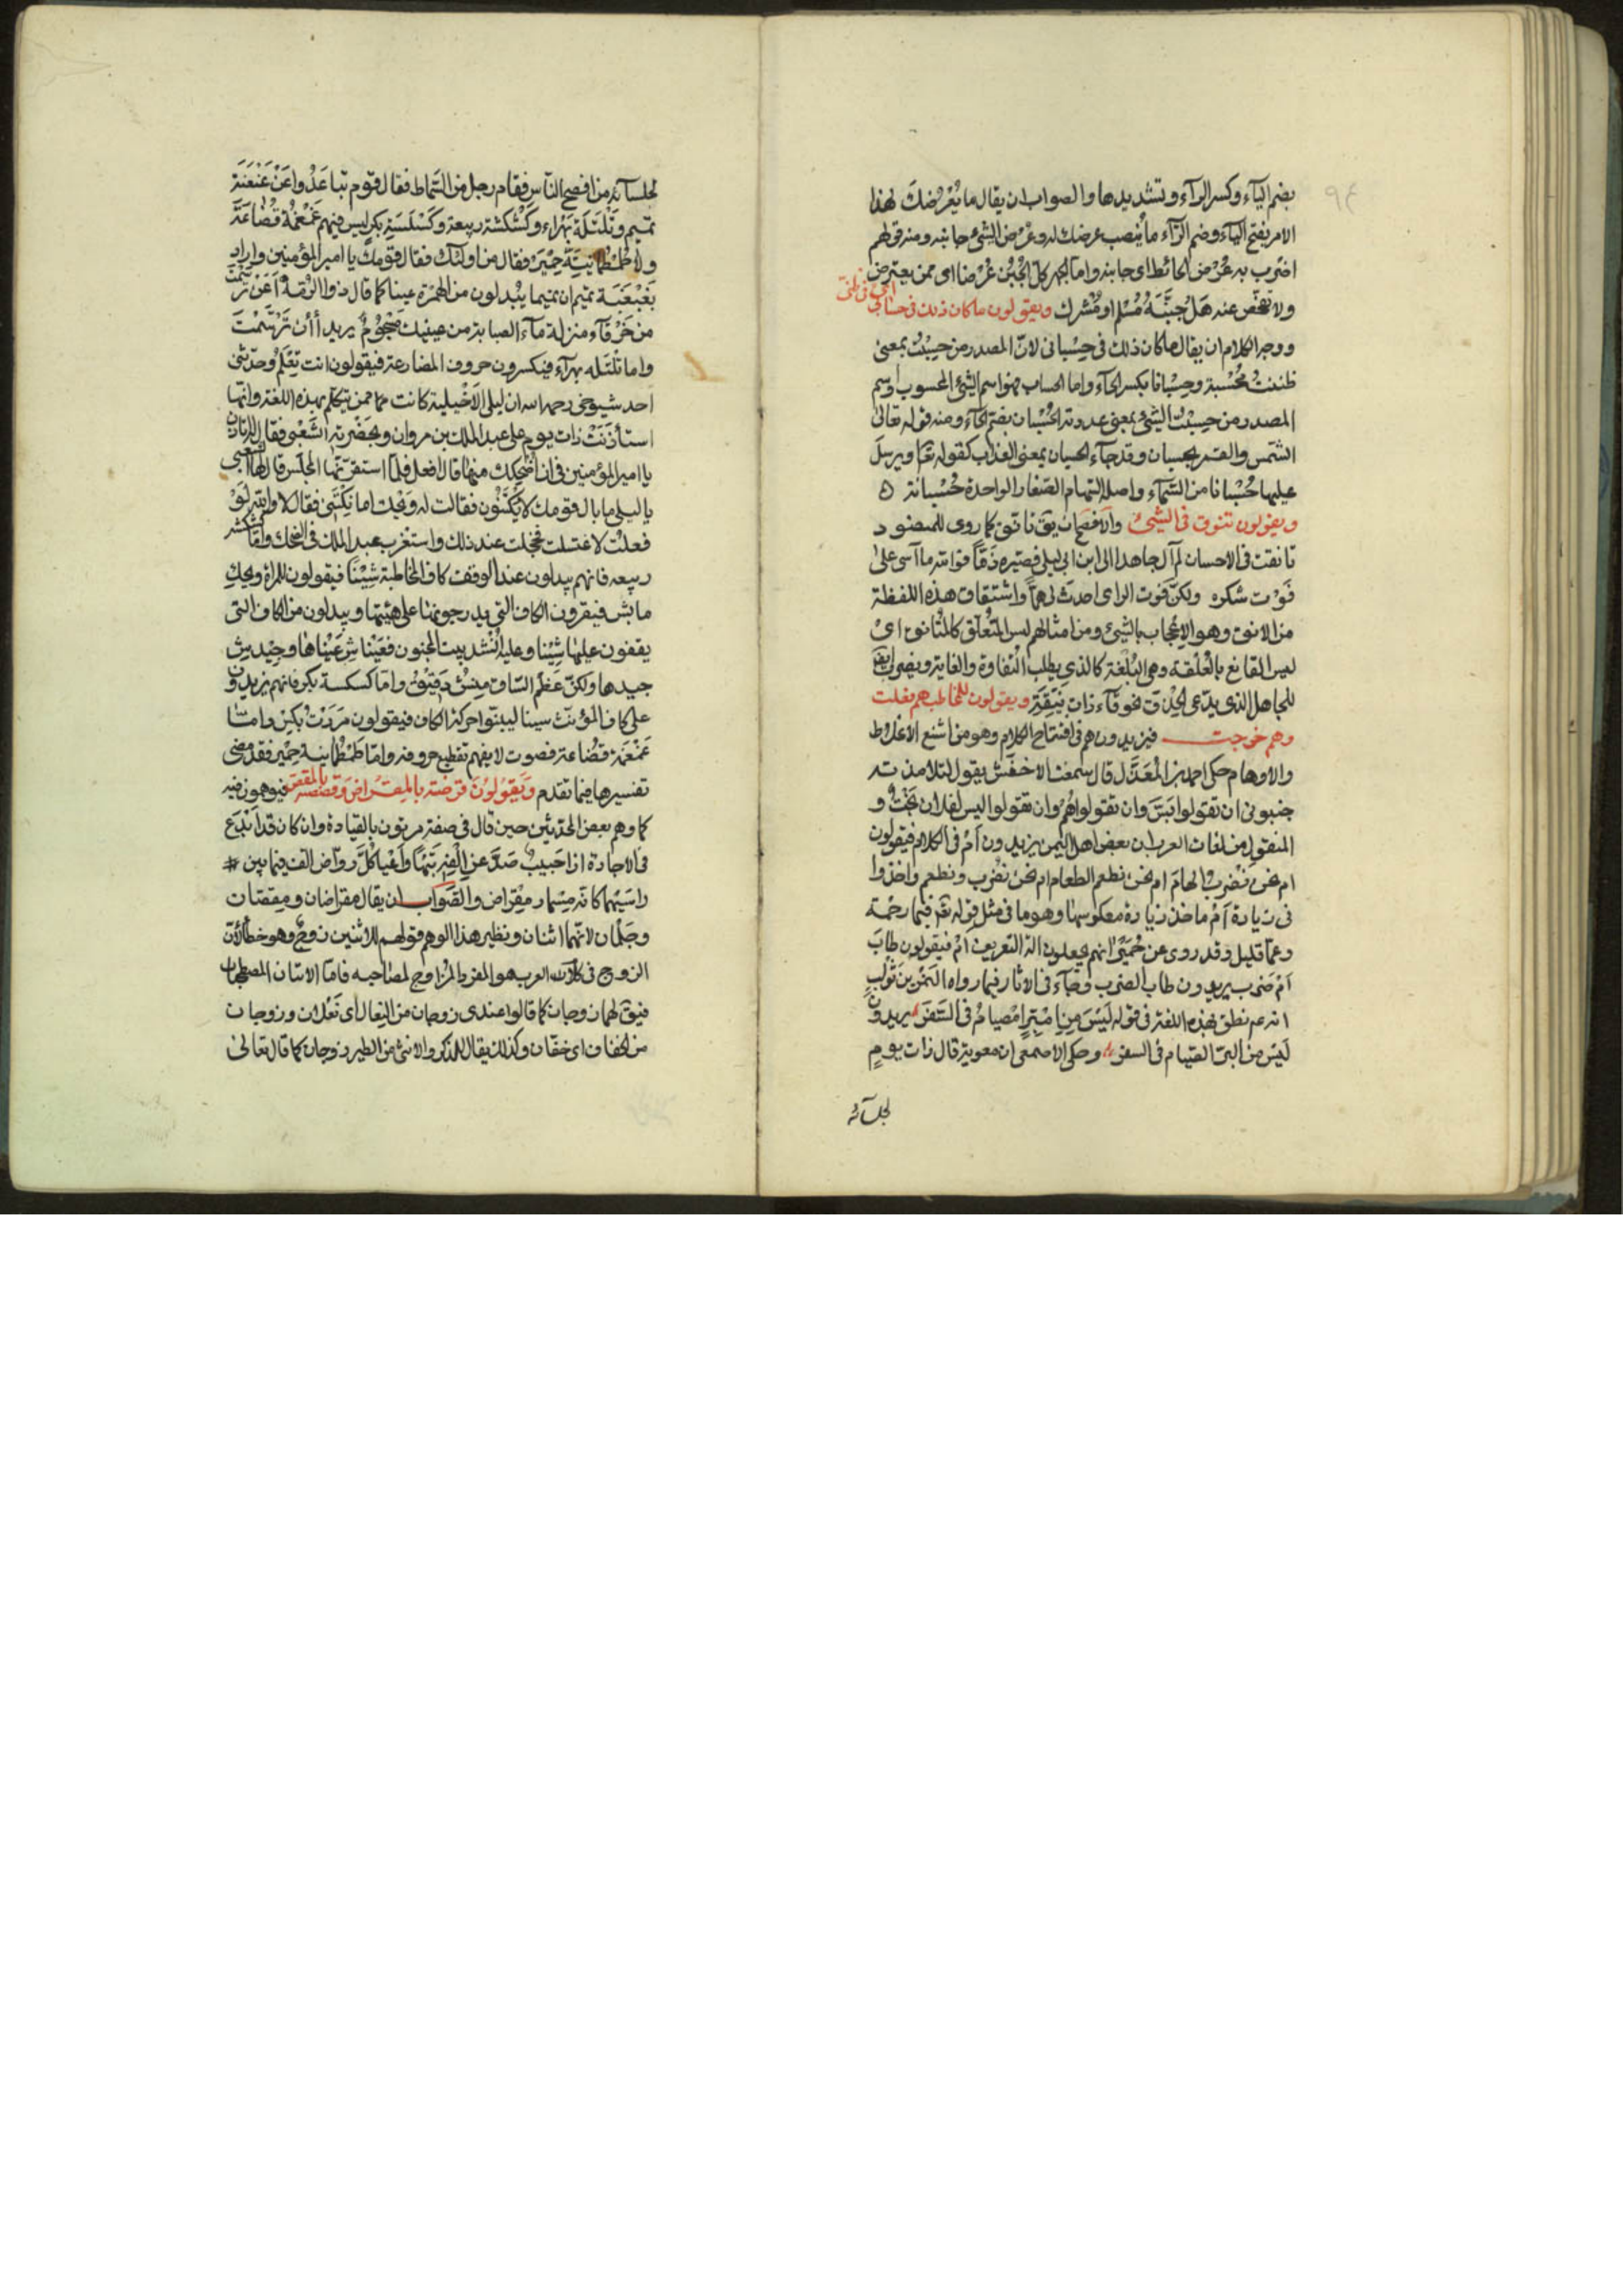 بضم اليآء وكسر الرآء وتشديدها والصواب ان يقال ما يُعْرِضُكَ لهذا
الامر بفتح اليآء وضم الرآء ما نصب عرضك له وعُرْض الشئ جانبه ومنه قولهم
اضرب به عُرْض الحائط اى جانبه واما كل الجُبُن عُرْضا اى ممن يعترض
ولا تفحص عنه هَل جَبَنَهُ مُسْلم او مُشْرك ويقولون ما كان ذلك فى حسابى اى فى ظنى
ووجه الكلام ان يقال ما كان ذلك فى حِسْبانى لانّ المصدر من حسِبْتُ بمعنى
ظننتُ مَحْسبة وحِسْبانا بكسر الحآء واما الحساب فهو اسم الشئ المحسوب واسم
المصدر من حسَبْت الشئ بمعنى عددته الحُسْبان بضم الحآء ومنه قوله تعالى
الشمس والقمر بحسبان وقد جآء الحسبان بمعنى العذاب كقوله تعا ويرسلَ
عليها حُسْبانا من السَّمآء واصله السهام الصّغار الواحدة حُسْبانة
ويقولون تنوق فى الشئ والافصح ان يق تانق كما روى للمنصور
تانقت فى الاحسان لم آل جاهدا الى ابن ابى ليلى فصيّره ذمّاً فوالله ما آسى على
فَوْت شكره ولكنّ فوت الراى احدث لى همّاً واشتقاق هذه اللفظة
من الانق وهو الاعجاب بالشئ ومن امثالهم ليس المتعلق كالمتانق اى
ليس القانع بالعُلْقة وهى البُلْغة كالذى يطلب النقاوة والغاية ويضرب ايض
للجاهل الذى يدّعى الحِذْق خرقآء ذات نِيقة ويقولون للمخاطب هم فعلت
وهم خرجت فيزيدون هم فى افتتاح الكلام وهو من اشنع الاغلاط
والاوهام حكى احمد بن المعذّل قال سمعت الاخفش يقول لتلامذته
جنبونى ان تقولوا بَسّ وان تقولوا هَم وان تقولوا ليس لفلان بَخْت و
المنقول من لغات العرب ان بعض اهل اليمن يزيدون اَمْ فى الكلام فيقولون
ام نحن نضرب الهام ام نحن نطعم الطعام اى نحن نضرب ونطعم واخذوا
فى زيادة اَمْ ماخذ زيادة معكوسها وهو ما فى مثل قوله تع فبما رحمة
وعمّا قليل وقد روى عن حِمْيَر انهم يجعلون الة التعريف امْ فيقولون طابَ
اَمْ ضرب يريدون طاب الضرب وجآء فى الاثار فيما رواه النمر بن تَوْلب
انه عم نطق بهذه اللغة فى قوله لَيْسَ مِن اِمْبِرّ اِمْصيام فى امْسَفر يريد
لَيْسَ من البرّ الصّيام فى السفر وحكى الاصمعى ان معوية قال ذات يوم
لجلسآئه
لجلسآئه من افصح النّاس فقام رجل من السّماط فقال قوم تباعَدُوا عَنْ عَنْعَنَة
تميم وتَلْتَلَة بَهْراء وكَشْكشة ربيعة وكَسْكَسَة بكر ليس فيهم غَمْغمة قُضاعَة
ولا طُمطُمانيّة حِمْيَر فقال من اولئك فقال قومك يا امير المؤمنين واراد
بعَنْعَنَة تميم ان تميما يُبْدلون من الهمزة عينا كما قال ذو الرُّمّة اَعَنْ ترسّمْت
من خَرْقآء منزلة مآء الصبابة من عينيك مَسْجُوم يريد أأن تَرَسَّمْتَ
واما تَلْتَله بهرآء فيكسرون حروف المضارعة فيقولون انت تِعْلَم وحدّثنى
احد شيوخى رحمه الله ان ليلى الاَخْيلية كانت ممن يتكلم بهذه اللغة وانها
استأذَنَتْ ذات يوم على عبد الملك بن مروان وبحَضْرته الشَّعبى فقال له اتاذن
يا امير المؤمنين فى ان اُضحِكك منها قال افعل فلمّا استقرّ بها المجلس قال لها الشعبى
يا ليلى ما بال قومك لا يكتنُون فقالت له وَيْحك اما نِكْتَنى فقال لا والله لَوْ
فعلتُ لاغتسلت فخجلت عند ذلك واستغرب عبد الملك فى الضحك وامّا كشكشة
ربيعه فانهم يبدلون عند الوقف كاف المخاطبة شِينًا فيقولون للمراة ويحكِ
ما بش فيقرون الكاف التى يدرجونها على هيئتها ويبدلون من الكاف التى
يقفون عليها شِيْنا وعليه اُنشد بيت المجنون فعَيْناشِ عَيْناها وجِيْدشِ
جيدها ولكنّ عَظْم السّاق مِنشِ دَقِيْق وامّا كسكسة بكر فانهم يزيدون
على كاف المؤنث سينا ليبيّنوا حركة الكاف فيقولون مَرَرْتُ بِكِسْ وامّا
غَمْغَمة قضاعة فصوت لا يفهم تقطيع حروفه وامّا طُمْطُمانية حِمْيَر فقد مضى
تفسيرها فيما تقدم وَيَقُولُونَ قرضته بالمِقْراض وقصصته بالمقص فيوهمون فيه
كما وهم بعض المحدثين حين قال فى صفة مزتون بالقيادة وان كان قد اَبْدَع
فى الاجادة اذا حَبِيبٌ صَدَّ عن اِلْفِه تِيْهًا واَعْيا كُلَّ روّاض الف فيما بين
راسَيْهما كانّه مِسْمار مِقْراض والصّواب ان يقال مقراضان ومقصّان
وجَلَمان لانّهما اثنان ونظير هذا الوهم قولهم للاثنين زوج وهو خطأ لانّ
الزوج فى كلام العرب هو الفرد المزاوج لصاحبه فامّا الاثنان المصطحبان
فيق لهما زوجان كما قالوا عندى زوجان من النعال اى نَعْلان وزوجان
من الخفاف اى خفّان وكذلك يقال للذكر والانثى من الطير زوجان كما قال تعالى